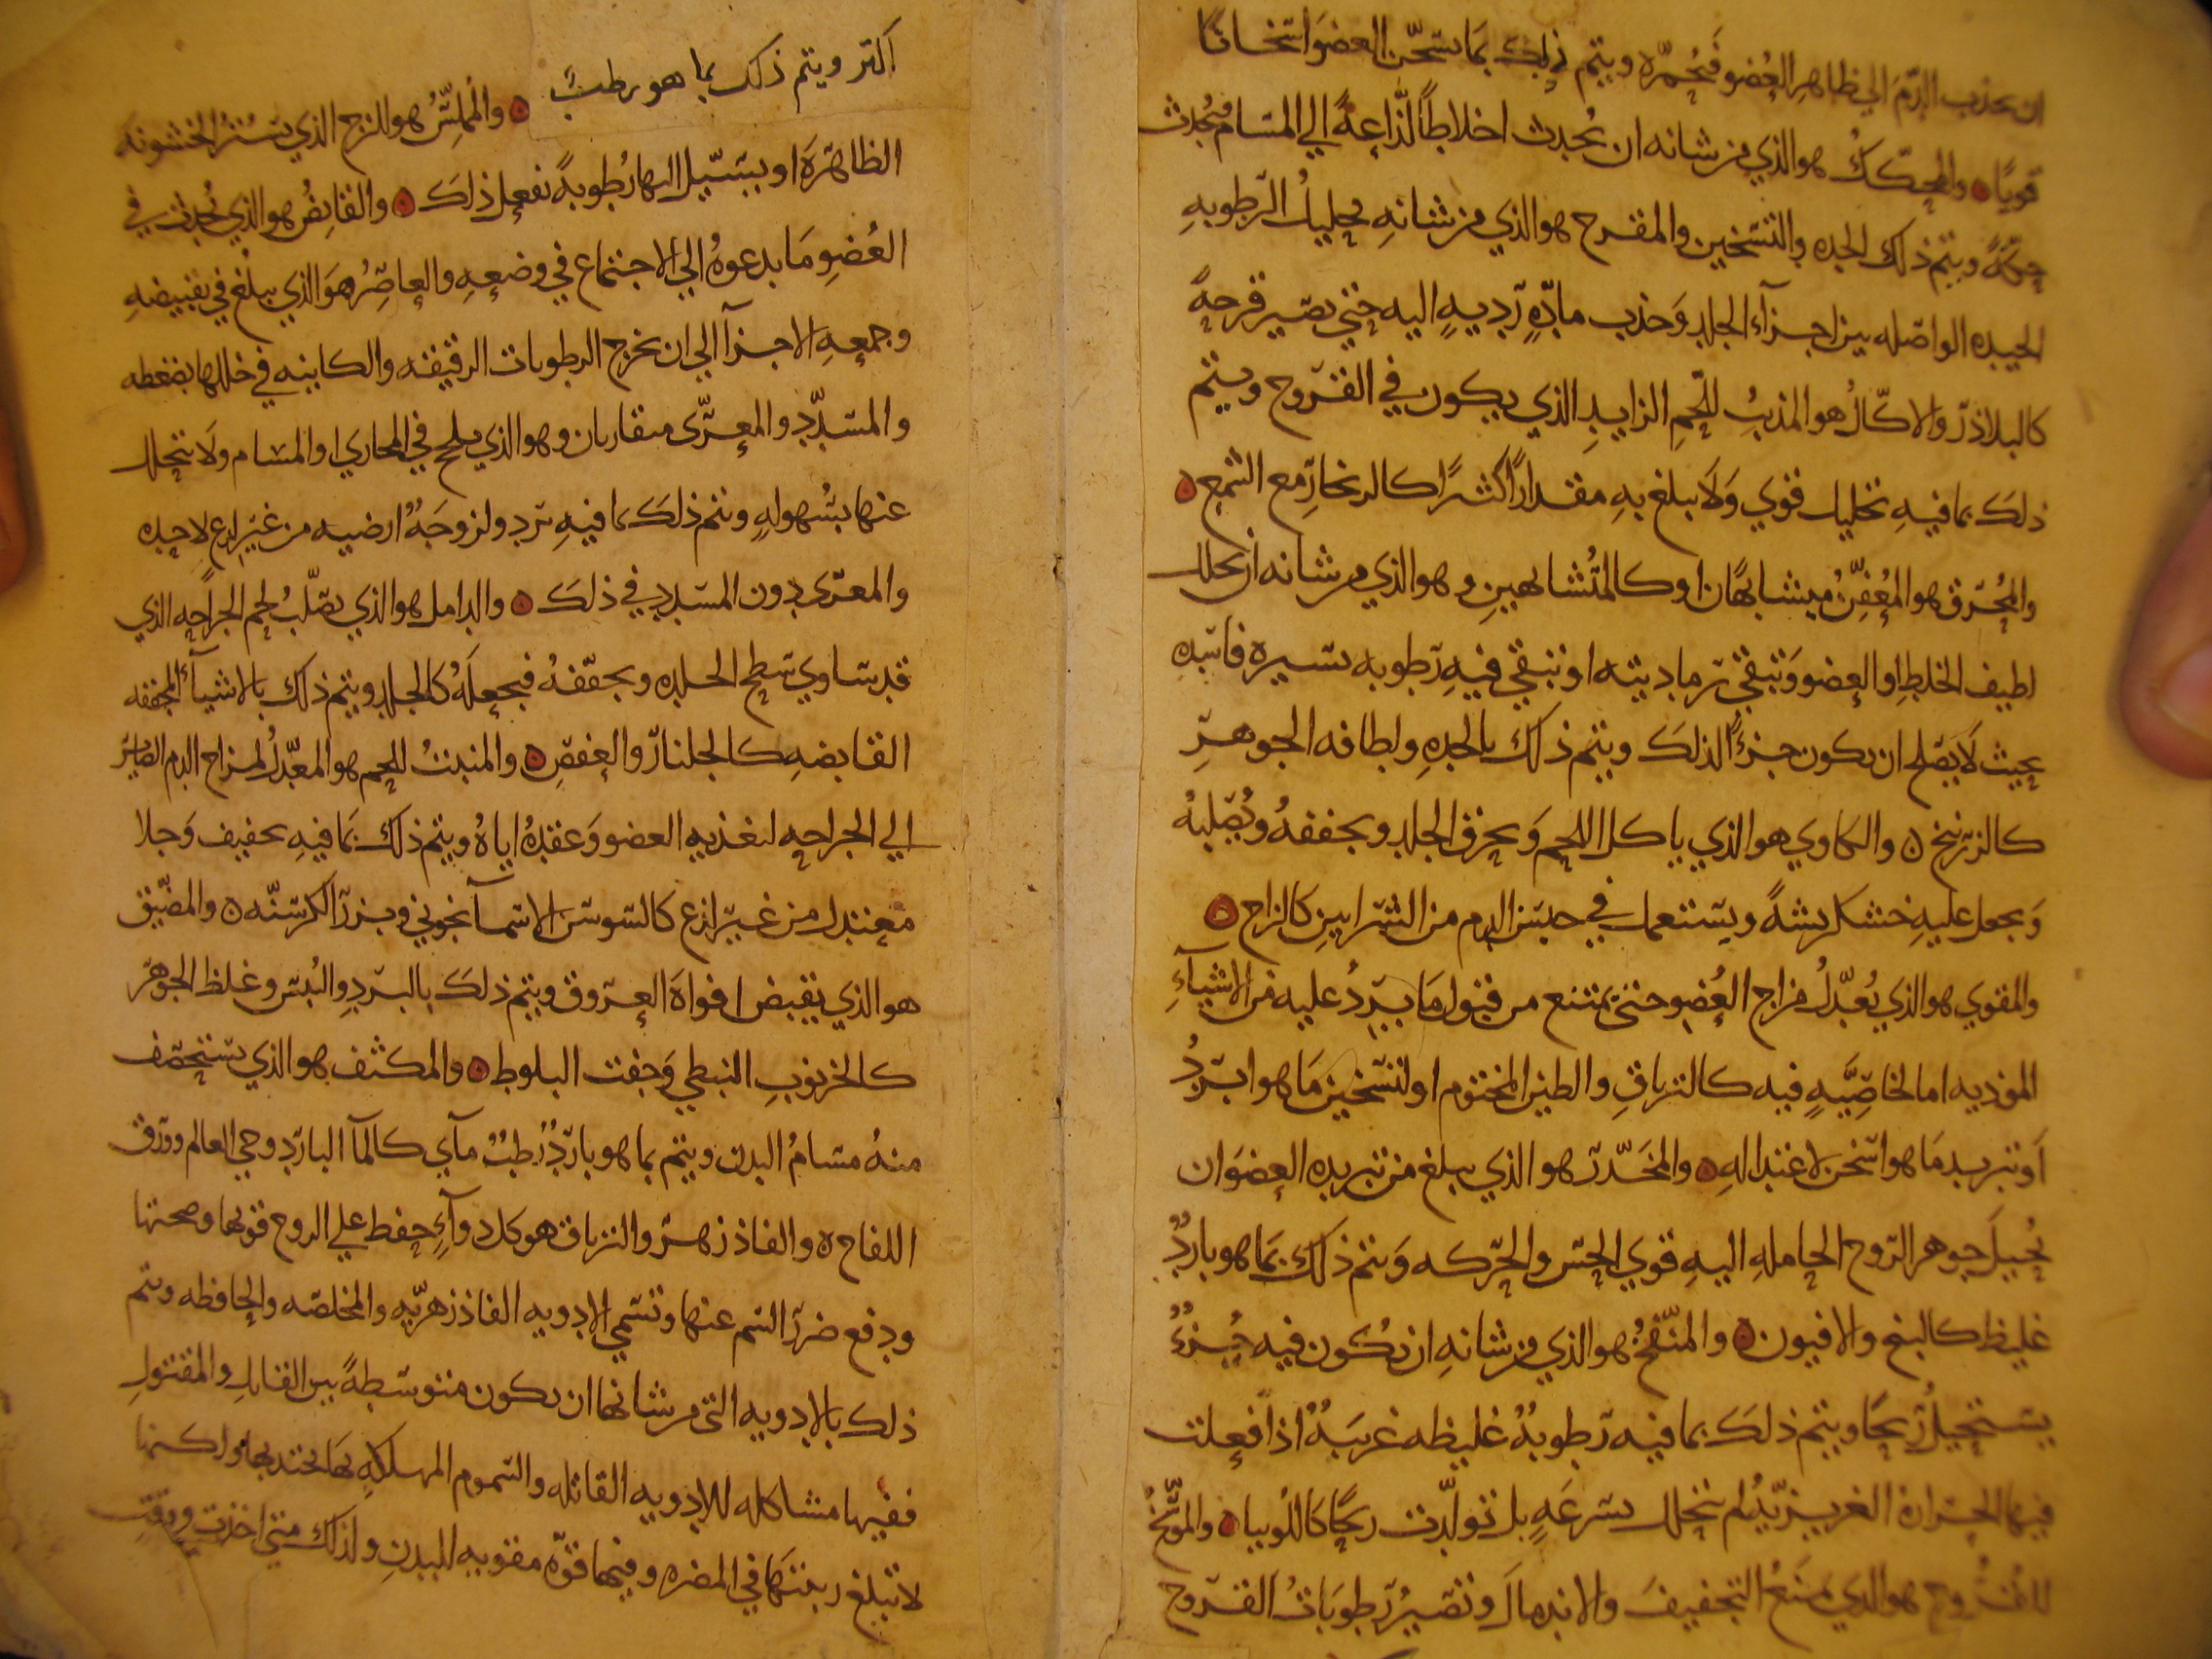 ان يجذب الدم الي ظاهر العضو فيحمره ويتم ذلك بما يسخن العضو اسخانا
قويا ۝ والمحكك هو الذي من شانه ان يحدث اخلاطا لذاعة الي المسام فيحدث
حكة ويتم ذلك الحده والتسخين والمقرح هو الذي من شانه تحليل الرطوبه
الجيده الواصله بين اجزآء الجلد وجذب مادة رديه اليه حتي يصير قرحة
كالبلاذر والاكال هو المذيب للحم الزايد الذي يكون في القروح ويتم
ذلك بما فيه تحليل قوي ولا يبلغ به مقدارا كثيرا كالزنجار مع الشمع ۝
والمحرق هو المعفن متشابهان او كالمتشابهين وهو الذي من شانه ان يحلل
لطيف الخلط او العضو وتبقي رماديته او تبقي فيه رطوبه يسيره فاسده
بحيث لا يصلح ان يكون جزءا لذلك ويتم ذلك بالحده ولطافه الجوهر
كالزرنيخ ۝ والكاوي هو الذي ياكل اللحم ويحرق الجلد ويجففه ويصلبه
ويجعل عليه خشكريشة ويستعمل في حبس الدم من الشرايين كالزاج ۝
والمقوي هو الذي يعدل مزاج العضو حتي يمتنع من قبول ما يرد عليه من الاشيآء
الموذيه اما لخاصية فيه كالترياق والطين المختوم او لتسخين ما هو ابرد
او تبريد ما هو اسخن لاعتداله ۝ والمخدر هو الذي يبلغ من تبريده العضو ان
يحيل جوهر الروح الحامله اليه قوي الحس والحركه ويتم ذلك بما هو بارد
غليظ كالبنج والافيون ۝ والمنفخ هو الذي من شانه ان يكون فيه جزء
يستحيل ريحا ويتم ذلك بما فيه رطوبة غليظه غريبة اذا فعلت
فيها الحرارة الغريزية لم تتحلل بسرعة بل تولدت ريحا كاللوبيا ۝ والموسخ
للقروح هو الذي يمنع التجفيف والاندمال وتصير رطوبات القروح
اكثر ويتم ذلك بما هو رطب ۝ والمملس هو اللزج الذي يستر الخشونه
الظاهرة او يسيل اليها رطوبة تفعل ذلك ۝ والقابض هو الذي يحدث في
العضو ما يدعوه الي الاجتماع في وضعه والعاصر هو الذي يبلغ في تقبيضه
وجمعه الاجزآ الي ان تخرج الرطوبات الرقيقه والكاينه في خللها بضغطه
والمسدد والمغري متقاربان وهو الذي يلحج في المجاري او المسام ولا يتحلل
عنها بسهولة ويتم ذلك بما فيه برد ولزوجة ارضيه من غير لذع لا حده
والمغري دون المسدد في ذلك ۝ والدامل هو الذي يصلب لحم الجراحه الذي
قد ساوي سطح الجلده ويجففه فيجعله كالجلد ويتم ذلك بالاشيآء المجففه
القابضه كالجلنار والعفص ۝ والمنبت للحم هو المعدل لمزاج الدم الصاير
الي الجراحه لتغذيه العضو وعقده اياه ويتم ذلك بما فيه تجفيف وجلا
معتدل من غير لذع كالسوسن الاسمآنجوني وبزر الكرسنه ۝ والمضيق
هو الذي يقبض افواه العروق ويتم ذلك بالبرد واليبس وغلظ الجوهر
كالخرنوب النبطي وجفت البلوط ۝ والمكثف هو الذي يستحصف
منه مسام البدن ويتم بما هو بارد رطب مآي كالمآ البارد وحي العالم وورق
اللفاح ۝ والفاذزهر والترياق هو كل دوآء حفظ علي الروح قوتها وصحتها
ودفع ضرر السم عنها وتسمي الادويه الفاذزهريه والمخلصه والحافظه ويتم
ذلك بالادويه التي من شانها ان يكون متوسطة بين القاتل والمقتول
ففيها مشاكله للادويه القاتله والسموم المهلكه بها يجتذبها ولكنها
لا تبلغ رتبتها في المضره وفيها قوة مقويه للبدن ولذلك متي اخذت